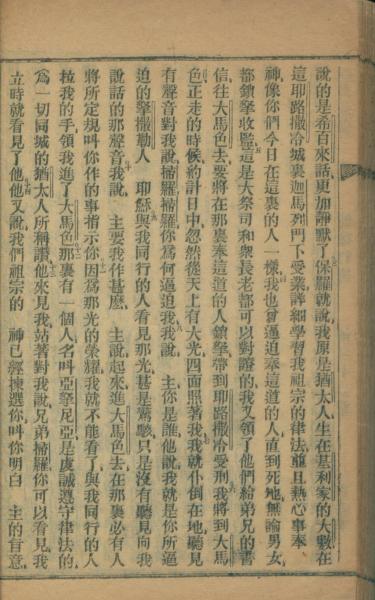 說的是希百來話更加靜默了保羅就說我原是猶太人生在基利家的大數在
這耶路撒冷城裏迦馬列門下受業詳細學習我祖宗的律法並且熱心事奉
神像你們今日在這裏的人一樣我也曾逼迫奉這道的人直到死地無論男女
都鎖拏收監這是大祭司和衆長老都可以對證的我又領了他們給弟兄的書
信往大馬色去要將在那裏奉這道的人鎖拏帶到耶路撒冷受刑我將到大馬
色正走的時候約計日中忽然從天上有大光四面照著我我就仆倒在地聽見
有聲音對我說掃羅掃羅你爲何逼迫我我說 主你是誰他說我就是你所逼
迫的拏撒勒人 耶穌與我同行的人看見那光甚是驚駭只是沒有聽見向我
說話的那聲音我說 主要我作甚麽 主說起來進大馬色去在那裏必有人
將所定規叫你作的事指示你因爲那光的榮耀我就不能看了與我同行的人
拉我的手領我進了大馬色那裏有一個人名叫亞拏尼亞是虔誠遵守律法的
爲一切同城的猶太人所稱讚他來見我站著對我說兄弟掃羅你可以看見我
立時就看見了他他又說我們祖宗的 神已經揀選你叫你明白 主的旨意